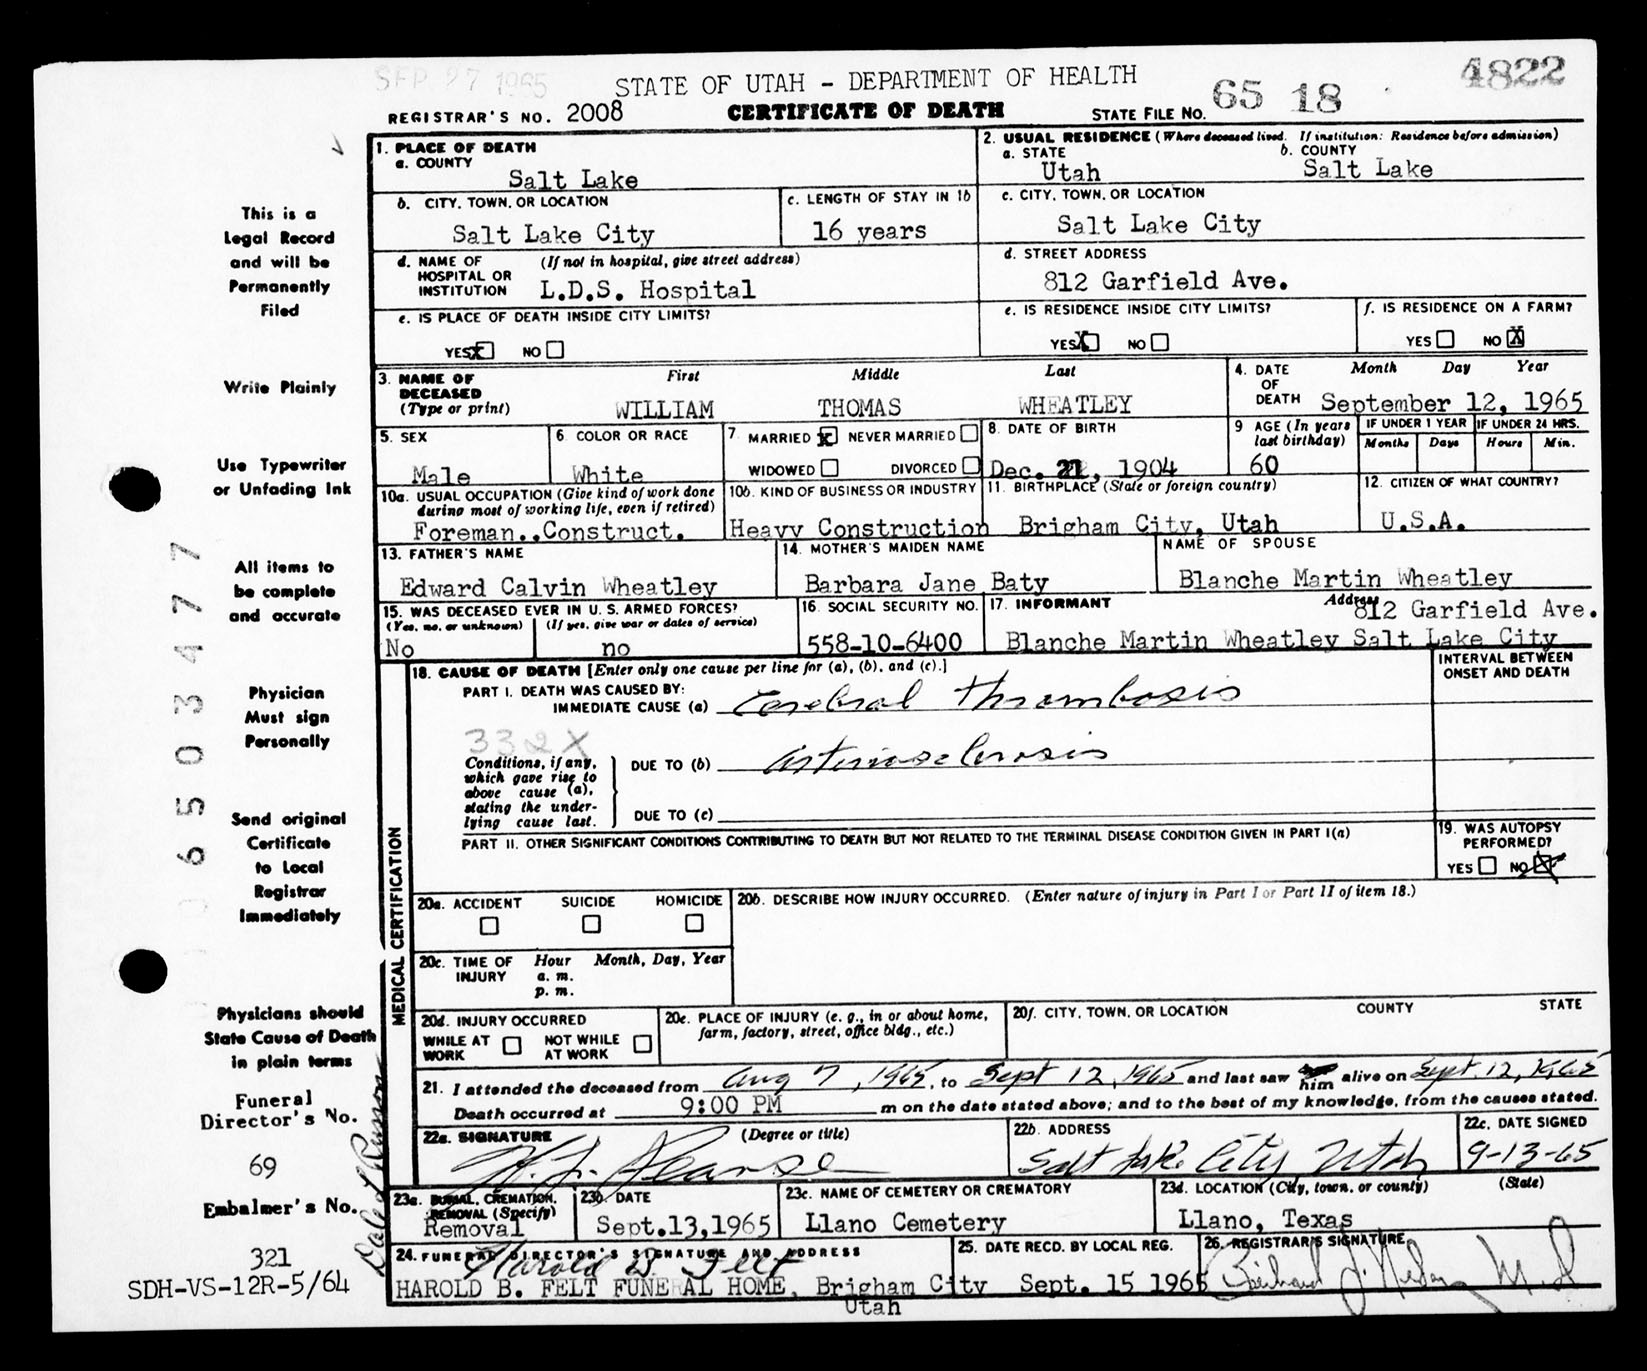 SEP 27 1965
STATE OF UTAH – DEPARTMENT OF HEALTH
4822
REGISTRAR'S NO. 2008
CERTIFICATE OF DEATH
STATE FILE NO. 65 18
1. PLACE OF DEATH
a. COUNTY
Salt Lake
2. USUAL RESIDENCE (Where deceased lived. If institution: Residence before admission)
a. STATE
Utah
b. COUNTY
Salt Lake
b. CITY, TOWN, OR LOCATION
Salt Lake City
c. LENGTH OF STAY IN 1b
16 years
c. CITY, TOWN, OR LOCATION
Salt Lake City
d. NAME OF HOSPITAL OR INSTITUTION
(If not in hospital, give street address)
L.D.S. Hospital
d. STREET ADDRESS
812 Garfield Ave.
e. IS PLACE OF DEATH INSIDE CITY LIMITS?
YES X NO
e. IS RESIDENCE INSIDE CITY LIMITS?
YES X NO
f. IS RESIDENCE ON A FARM?
YES NO X
3. NAME OF DECEASED (Type or print)
First Middle Last
WILLIAM THOMAS WHEATLEY
4. DATE OF DEATH
Month Day Year
September 12, 1965
5. SEX
Male
6. COLOR OR RACE
White
7. MARRIED X NEVER MARRIED
WIDOWED DIVORCED
8. DATE OF BIRTH
Dec. 21, 1904
9 AGE (In years last birthday)
60
IF UNDER 1 YEAR
Months Days
IF UNDER 24 HRS.
Hours Min.
10a. USUAL OCCUPATION (Give kind of work done during most of working life, even if retired)
Foreman..Construct.
10b. KIND OF BUSINESS OR INDUSTRY
Heavy Construction
11. BIRTHPLACE (State or foreign country)
Brigham City, Utah
12. CITIZEN OF WHAT COUNTRY?
U.S.A.
13. FATHER'S NAME
Edward Calvin Wheatley
14. MOTHER'S MAIDEN NAME
Barbara Jane Baty
NAME OF SPOUSE
Blanche Martin Wheatley
15. WAS DECEASED EVER IN U. S. ARMED FORCES?
(Yes, no, or unknown) (If yes, give war or dates of service)
No no
16. SOCIAL SECURITY NO.
558-10-6400
17. INFORMANT
Address
812 Garfield Ave.
Blanche Martin Wheatley Salt Lake City
18. CAUSE OF DEATH [Enter only one cause per line for (a), (b), and (c).]
INTERVAL BETWEEN ONSET AND DEATH
PART I. DEATH WAS CAUSED BY:
IMMEDIATE CAUSE (a) Cerebral Thrombosis
332X
Conditions, if any, which gave rise to above cause (a), stating the underlying cause last.
DUE TO (b) Arteriosclerosis
DUE TO (c)
PART II. OTHER SIGNIFICANT CONDITIONS CONTRIBUTING TO DEATH BUT NOT RELATED TO THE TERMINAL DISEASE CONDITION GIVEN IN PART I(a)
19. WAS AUTOPSY PERFORMED?
YES NO X
MEDICAL CERTIFICATION
20a. ACCIDENT SUICIDE HOMICIDE
20b. DESCRIBE HOW INJURY OCCURRED. (Enter nature of injury in Part I or Part II of item 18.)
20c. TIME OF INJURY
Hour Month, Day, Year
a. m.
p. m.
20d. INJURY OCCURRED
WHILE AT WORK NOT WHILE AT WORK
20e. PLACE OF INJURY (e. g., in or about home, farm, factory, street, office bldg., etc.)
20f. CITY, TOWN, OR LOCATION COUNTY STATE
21. I attended the deceased from Aug 7, 1965, to Sept 12, 1965 and last saw him alive on Sept. 12, 1965
Death occurred at 9:00 PM m on the date stated above; and to the best of my knowledge, from the causes stated.
22a. SIGNATURE (Degree or title)
22b. ADDRESS
Salt Lake City, Utah
22c. DATE SIGNED
9-13-65
23a. BURIAL, CREMATION, REMOVAL (Specify)
Removal
23b. DATE
Sept.13,1965
23c. NAME OF CEMETERY OR CREMATORY
Llano Cemetery
23d. LOCATION (City, town, or county) (State)
Llano, Texas
24. FUNERAL DIRECTOR'S SIGNATURE AND ADDRESS
Harold B. Felt
HAROLD B. FELT FUNERAL HOME, Brigham City
Utah
25. DATE RECD. BY LOCAL REG.
Sept. 15 1965
26. REGISTRAR'S SIGNATURE
This is a
Legal Record
and will be
Permanently
Filed
Write Plainly
Use Typewriter
or Unfading Ink
All items to
be complete
and accurate
Physician
Must sign
Personally
Send original
Certificate
to Local
Registrar
Immediately
Physicians should
State Cause of Death
in plain terms
Funeral
Director's No.
69
Embalmer's No.
321
SDH-VS-12R-5/64
6503477